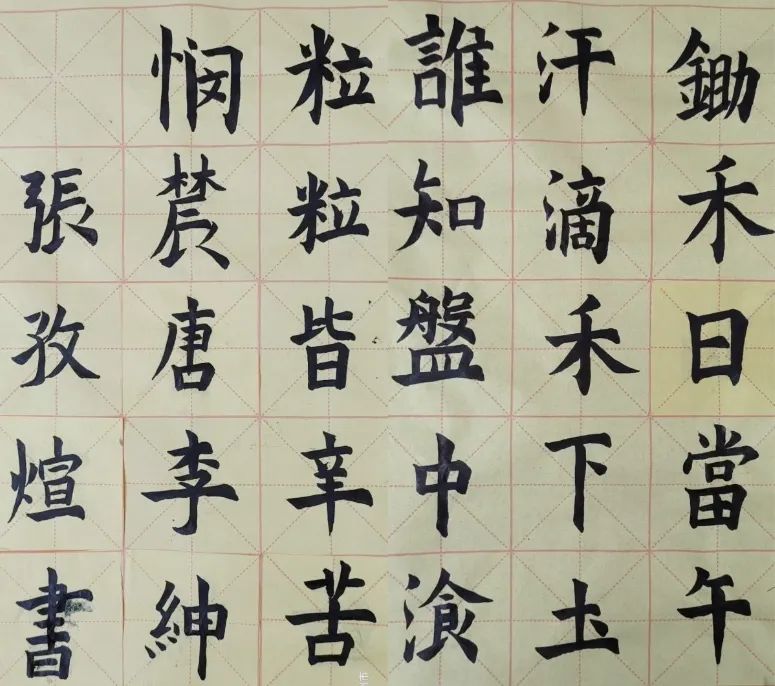 鋤禾日當午
汗滴禾下圡
誰知盤中湌
粒粒皆辛苦
悯辳唐李紳
張孜煊書